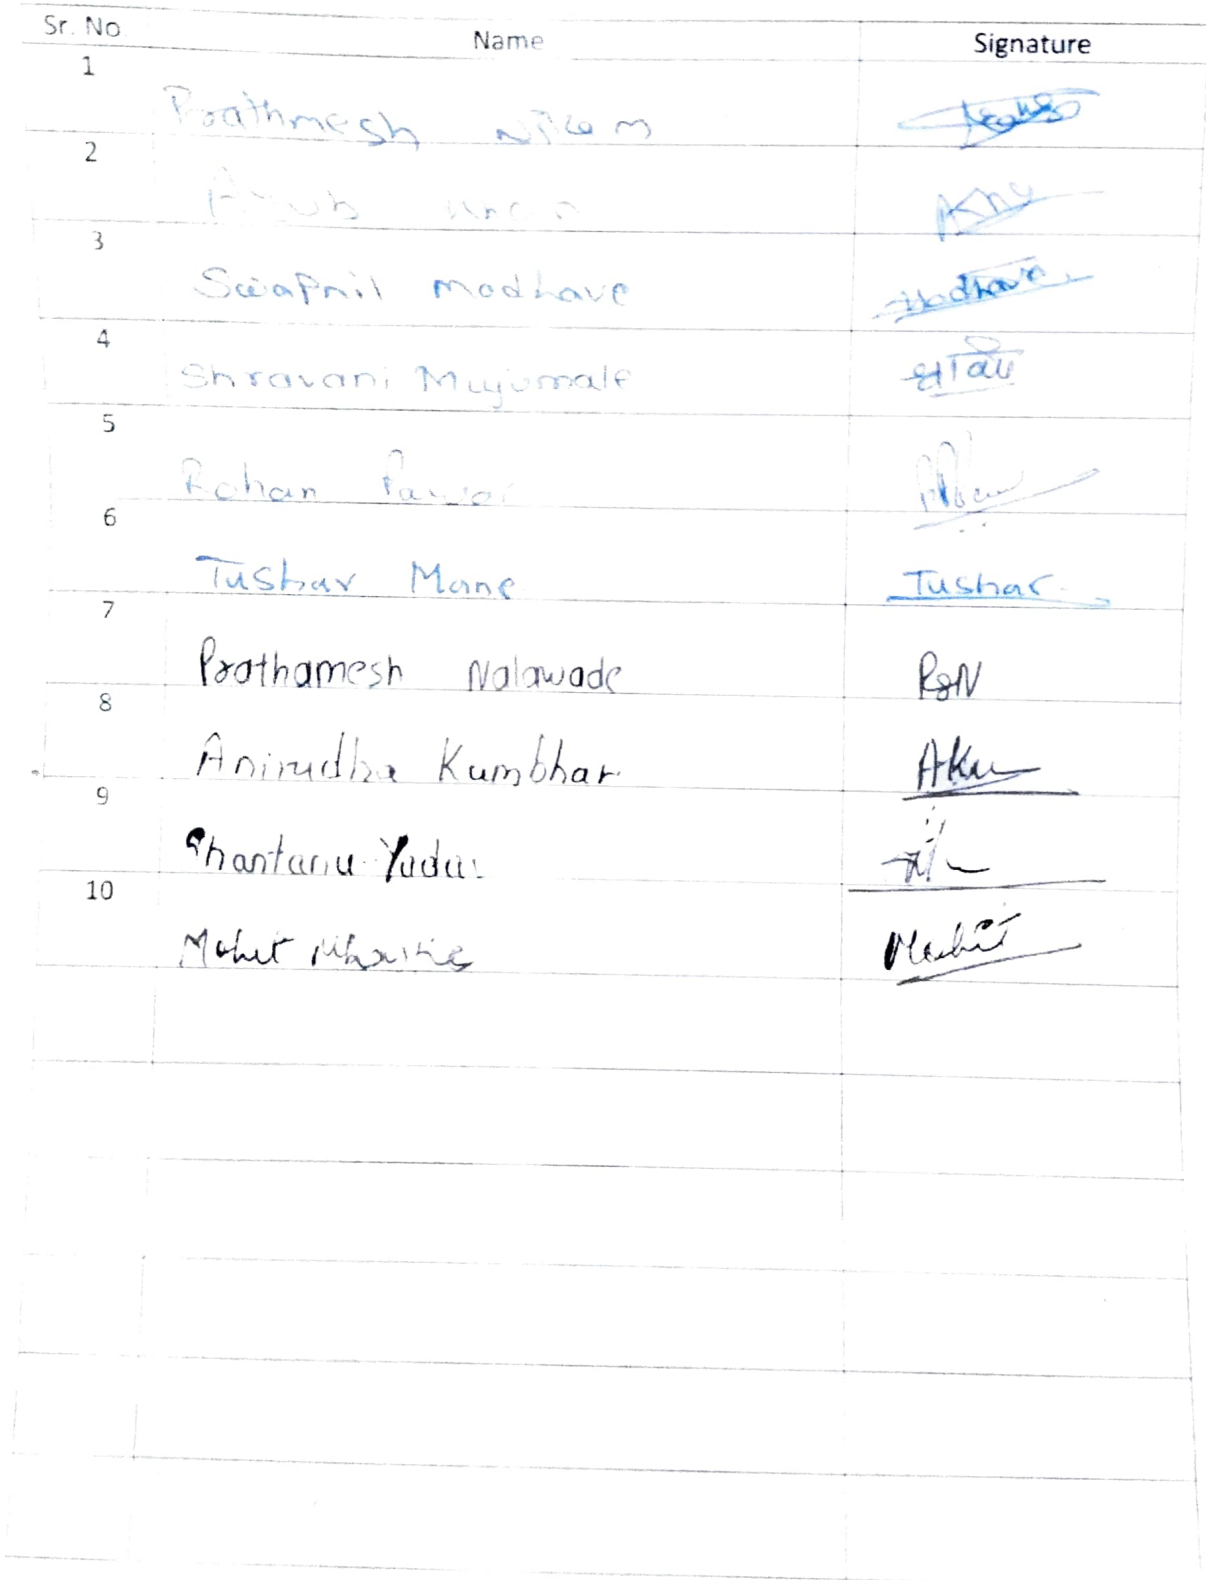 Sr. No. Name Signature
1
Prathmesh Nikam
2
3
Swapnil Madhave Madhave
4
Shravani Mujumale
5
Rohan Pawar
6
Tushar Mane Tushar
7
Prathamesh Nalawade PSN
8
Anirudha Kumbhar AKu
9
Shantanu Yadav
10
Mohit Mohit